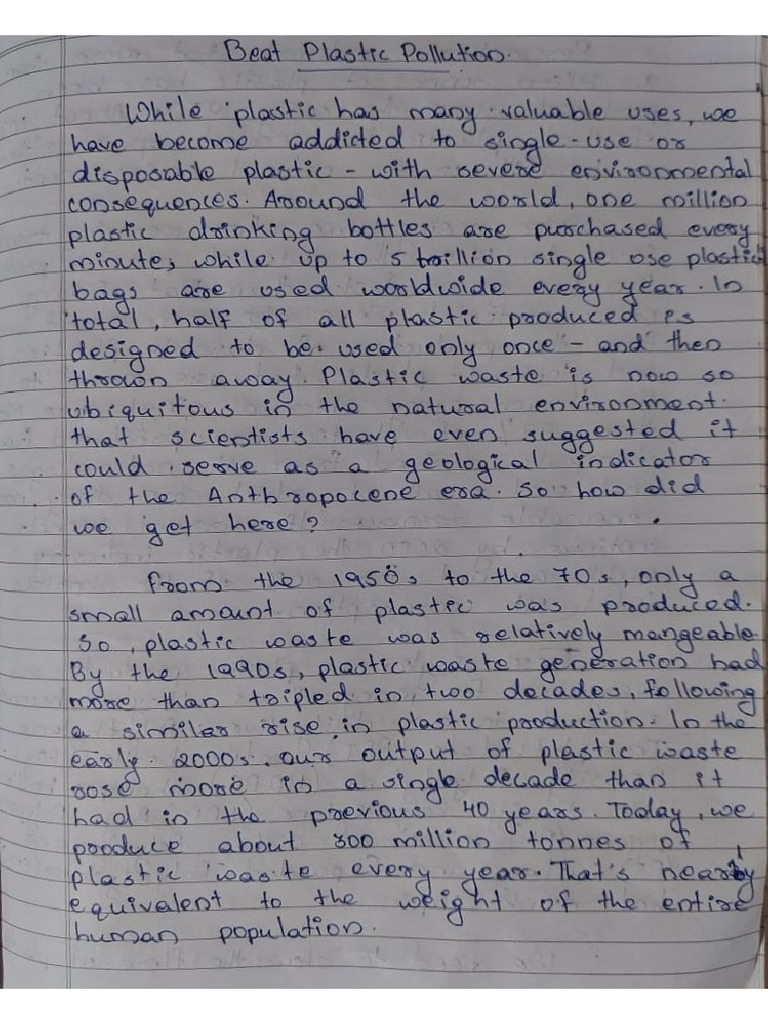 Beat Plastic Pollution.
While plastic has many valuable uses, we
have become addicted to single-use or
disposable plastic - with severe environmental
consequences. Around the world, one million
plastic drinking bottles are purchased every
minute, while up to 5 trillion single use plastic
bags are used worldwide every year. In
total, half of all plastic produced is
designed to be used only once - and then
thrown away. Plastic waste is now so
ubiquitous in the natural environment.
that scientists have even suggested it
could serve as a geological indicator
of the Anthropocene era. So how did
we get here?
From the 1950s to the 70s, only a
small amount of plastic was produced.
So, plastic waste was relatively mangeable
By the 1990s, plastic waste generation had
more than tripled in two decades, following
a similer rise in plastic production. In the
early 2000s, our output of plastic waste
rose more in a single decade than it
had in the previous 40 years. Today, we
produce about 300 million tonnes of
plastic waste every year. That's nearly
equivalent to the weight of the entire
human population.